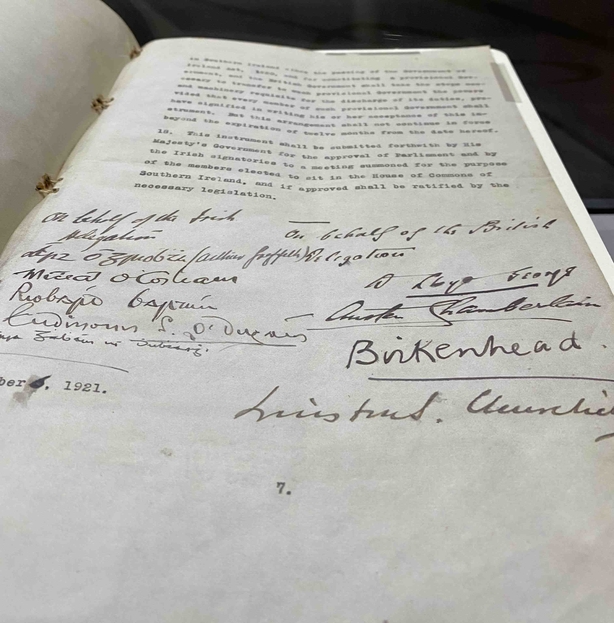 in Southern Ireland since the passing of the Government of
Ireland Act, 1920, and for constituting a provisional Gov-
ernment, and the British Government shall take the steps nec-
essary to transfer to such provisional Government the powers
and machinery requisite for the discharge of its duties, pro-
vided that every member of such provisional Government shall
have signified in writing his or her acceptance of this in-
strument. But this arrangement shall not continue in force
beyond the expiration of twelve months from the date hereof.
18. This instrument shall be submitted forthwith by His
Majesty's Government for the approval of Parliament and by
the Irish signatories to a meeting summoned for the purpose
of the members elected to sit in the House of Commons of
Southern Ireland, and if approved shall be ratified by the
necessary legislation.
On behalf of the Irish
Delegation
(Arthur Griffith)
Micheál O Coileain
Riobárd
S. O'Dugain
ber 6, 1921.
On behalf of the British
Delegation
D Lloyd George
Austen Chamberlain
Birkenhead.
Winston S. Churchil
7.